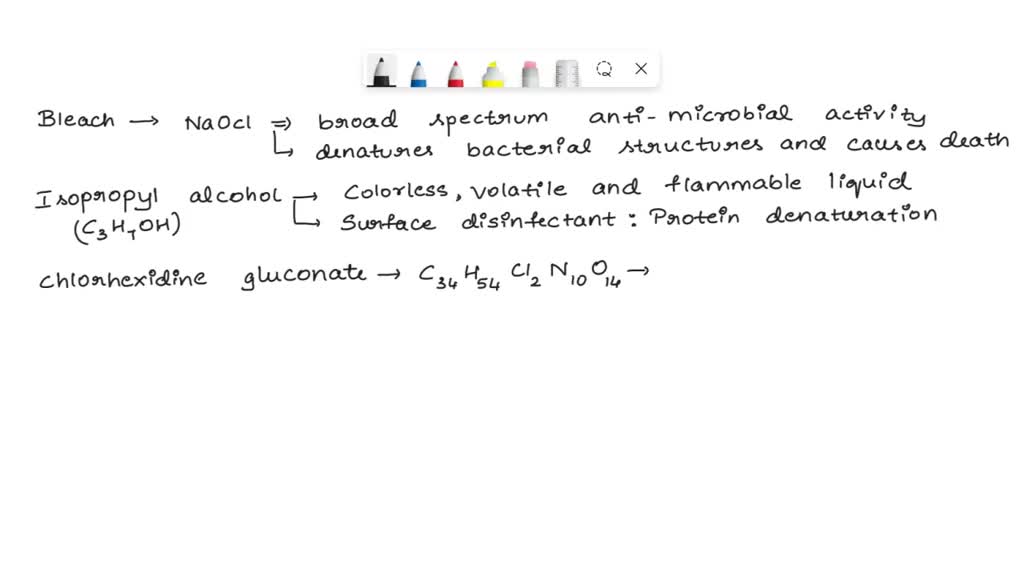 Bleach → NaOCl ⇒ broad spectrum anti-microbial activity
↳ denatures bacterial structures and causes death
Isopropyl alcohol → Colorless, volatile and flammable liquid
(C₃H₇OH) ↳ Surface disinfectant : Protein denaturation
chlorhexidine gluconate → C₃₄H₅₄Cl₂N₁₀O₁₄ →